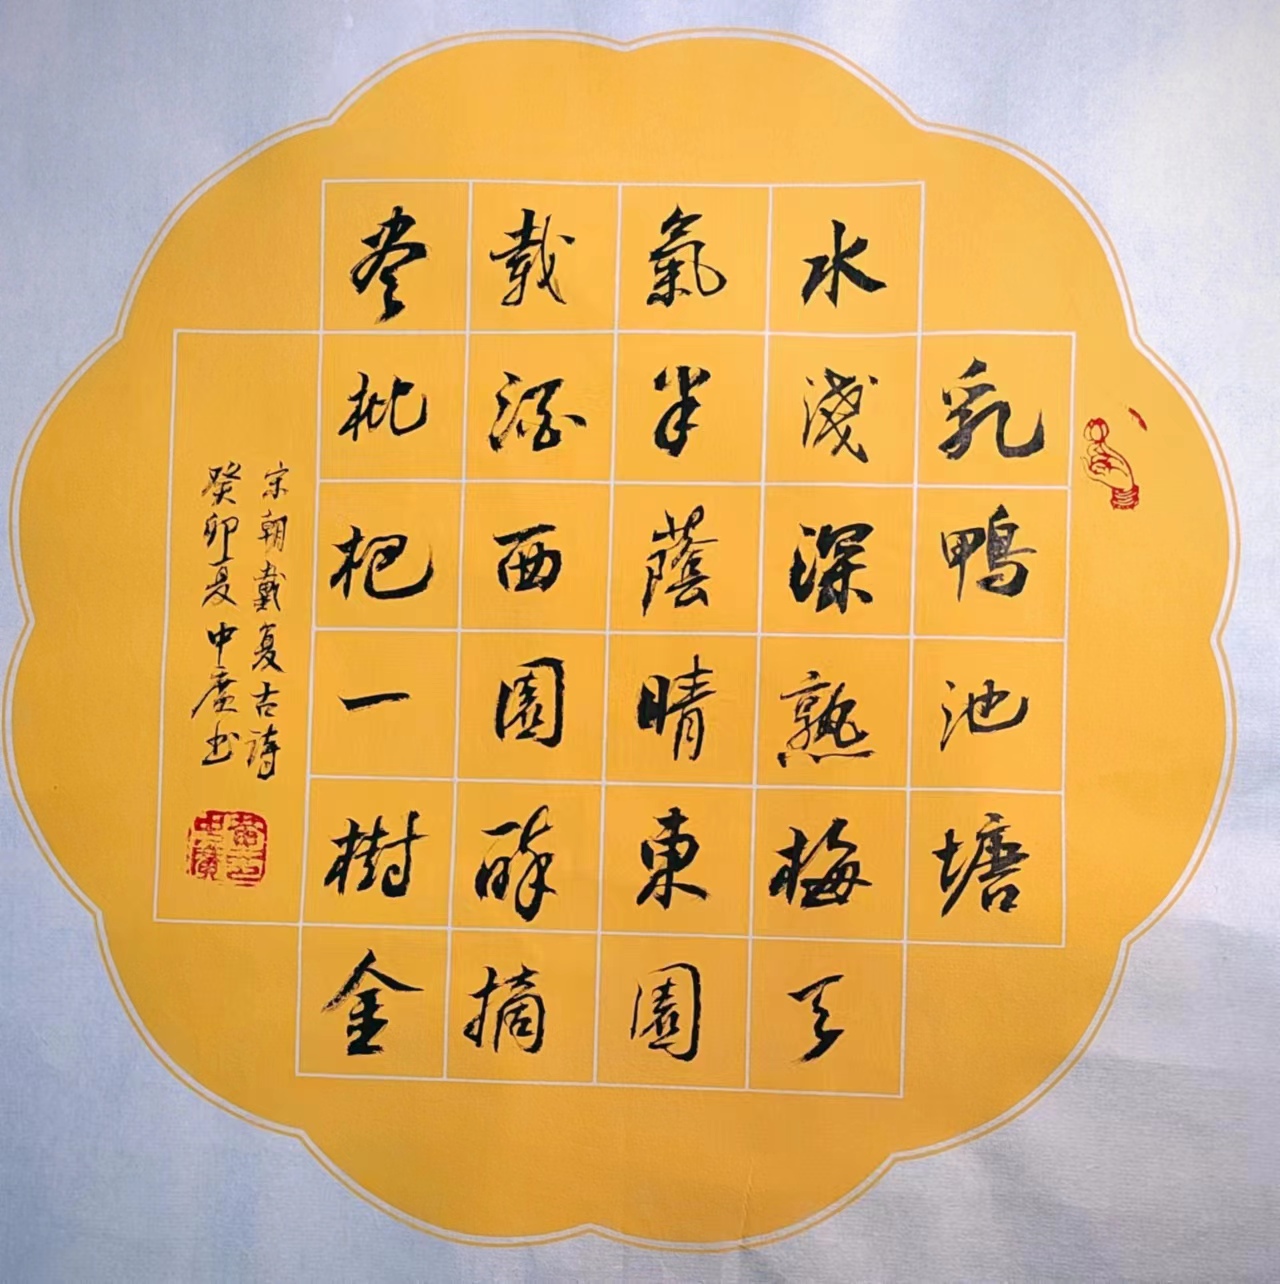 乳鴨池塘
水淺深熟梅天
氣半蔭晴東園
載酒西園醉摘
尽枇杷一樹金
宋朝戴复古詩
癸卯夏中廣书